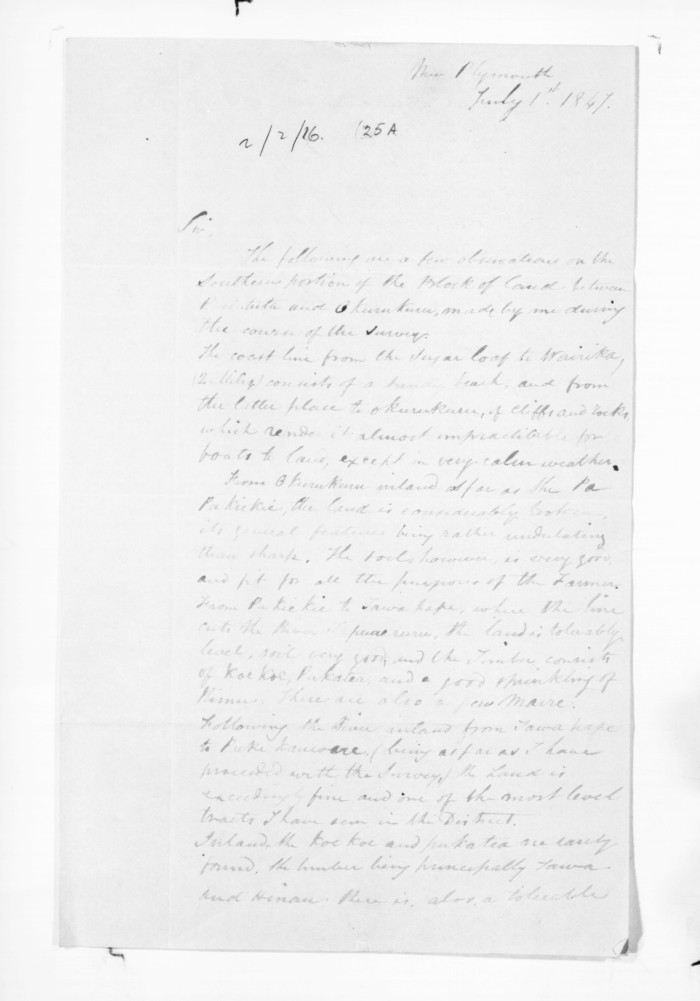 New Plymouth
July 1st. 1847.
2/2/16. (25A
Sir,
The following are a few observations on the
Southern portion of the Block of land between
and Okurukuru, made by me during
the course of the Survey.
The coast line from the Sugar loaf to Wairika,
(2 Miles) consists of a sandy beach, and from
the latter place to Okurukuru, of Cliffs and rocks,
which render it almost impractitable for
boats to land, except in very calm weather.
From Okurukuru inland as far as the Pa
Pukiekie, the land is considerably broken,
its general features being rather undulating
than sharp. The soil however, is very good
and fit for all the purposes of the Farmer.
From Pukiekie to Tawa hape, where the line
cuts the River, the land is tolerably
level, soil very good, and the Timber consists
of Koe koe, Pukatea, and a good sprinkling of
Rimu. There are also a few Maire.
Following the River inland from Tawa hape
to Puke (being as far as I have
proceeded with the Survey,) the Land is
exceedingly fine and one of the most level
tracts I have seen in the District.
Inland, the Koe Koe and pukatea are rarely
found, the timber being principally Tawa
and Hinau. There is, also, a tolerable